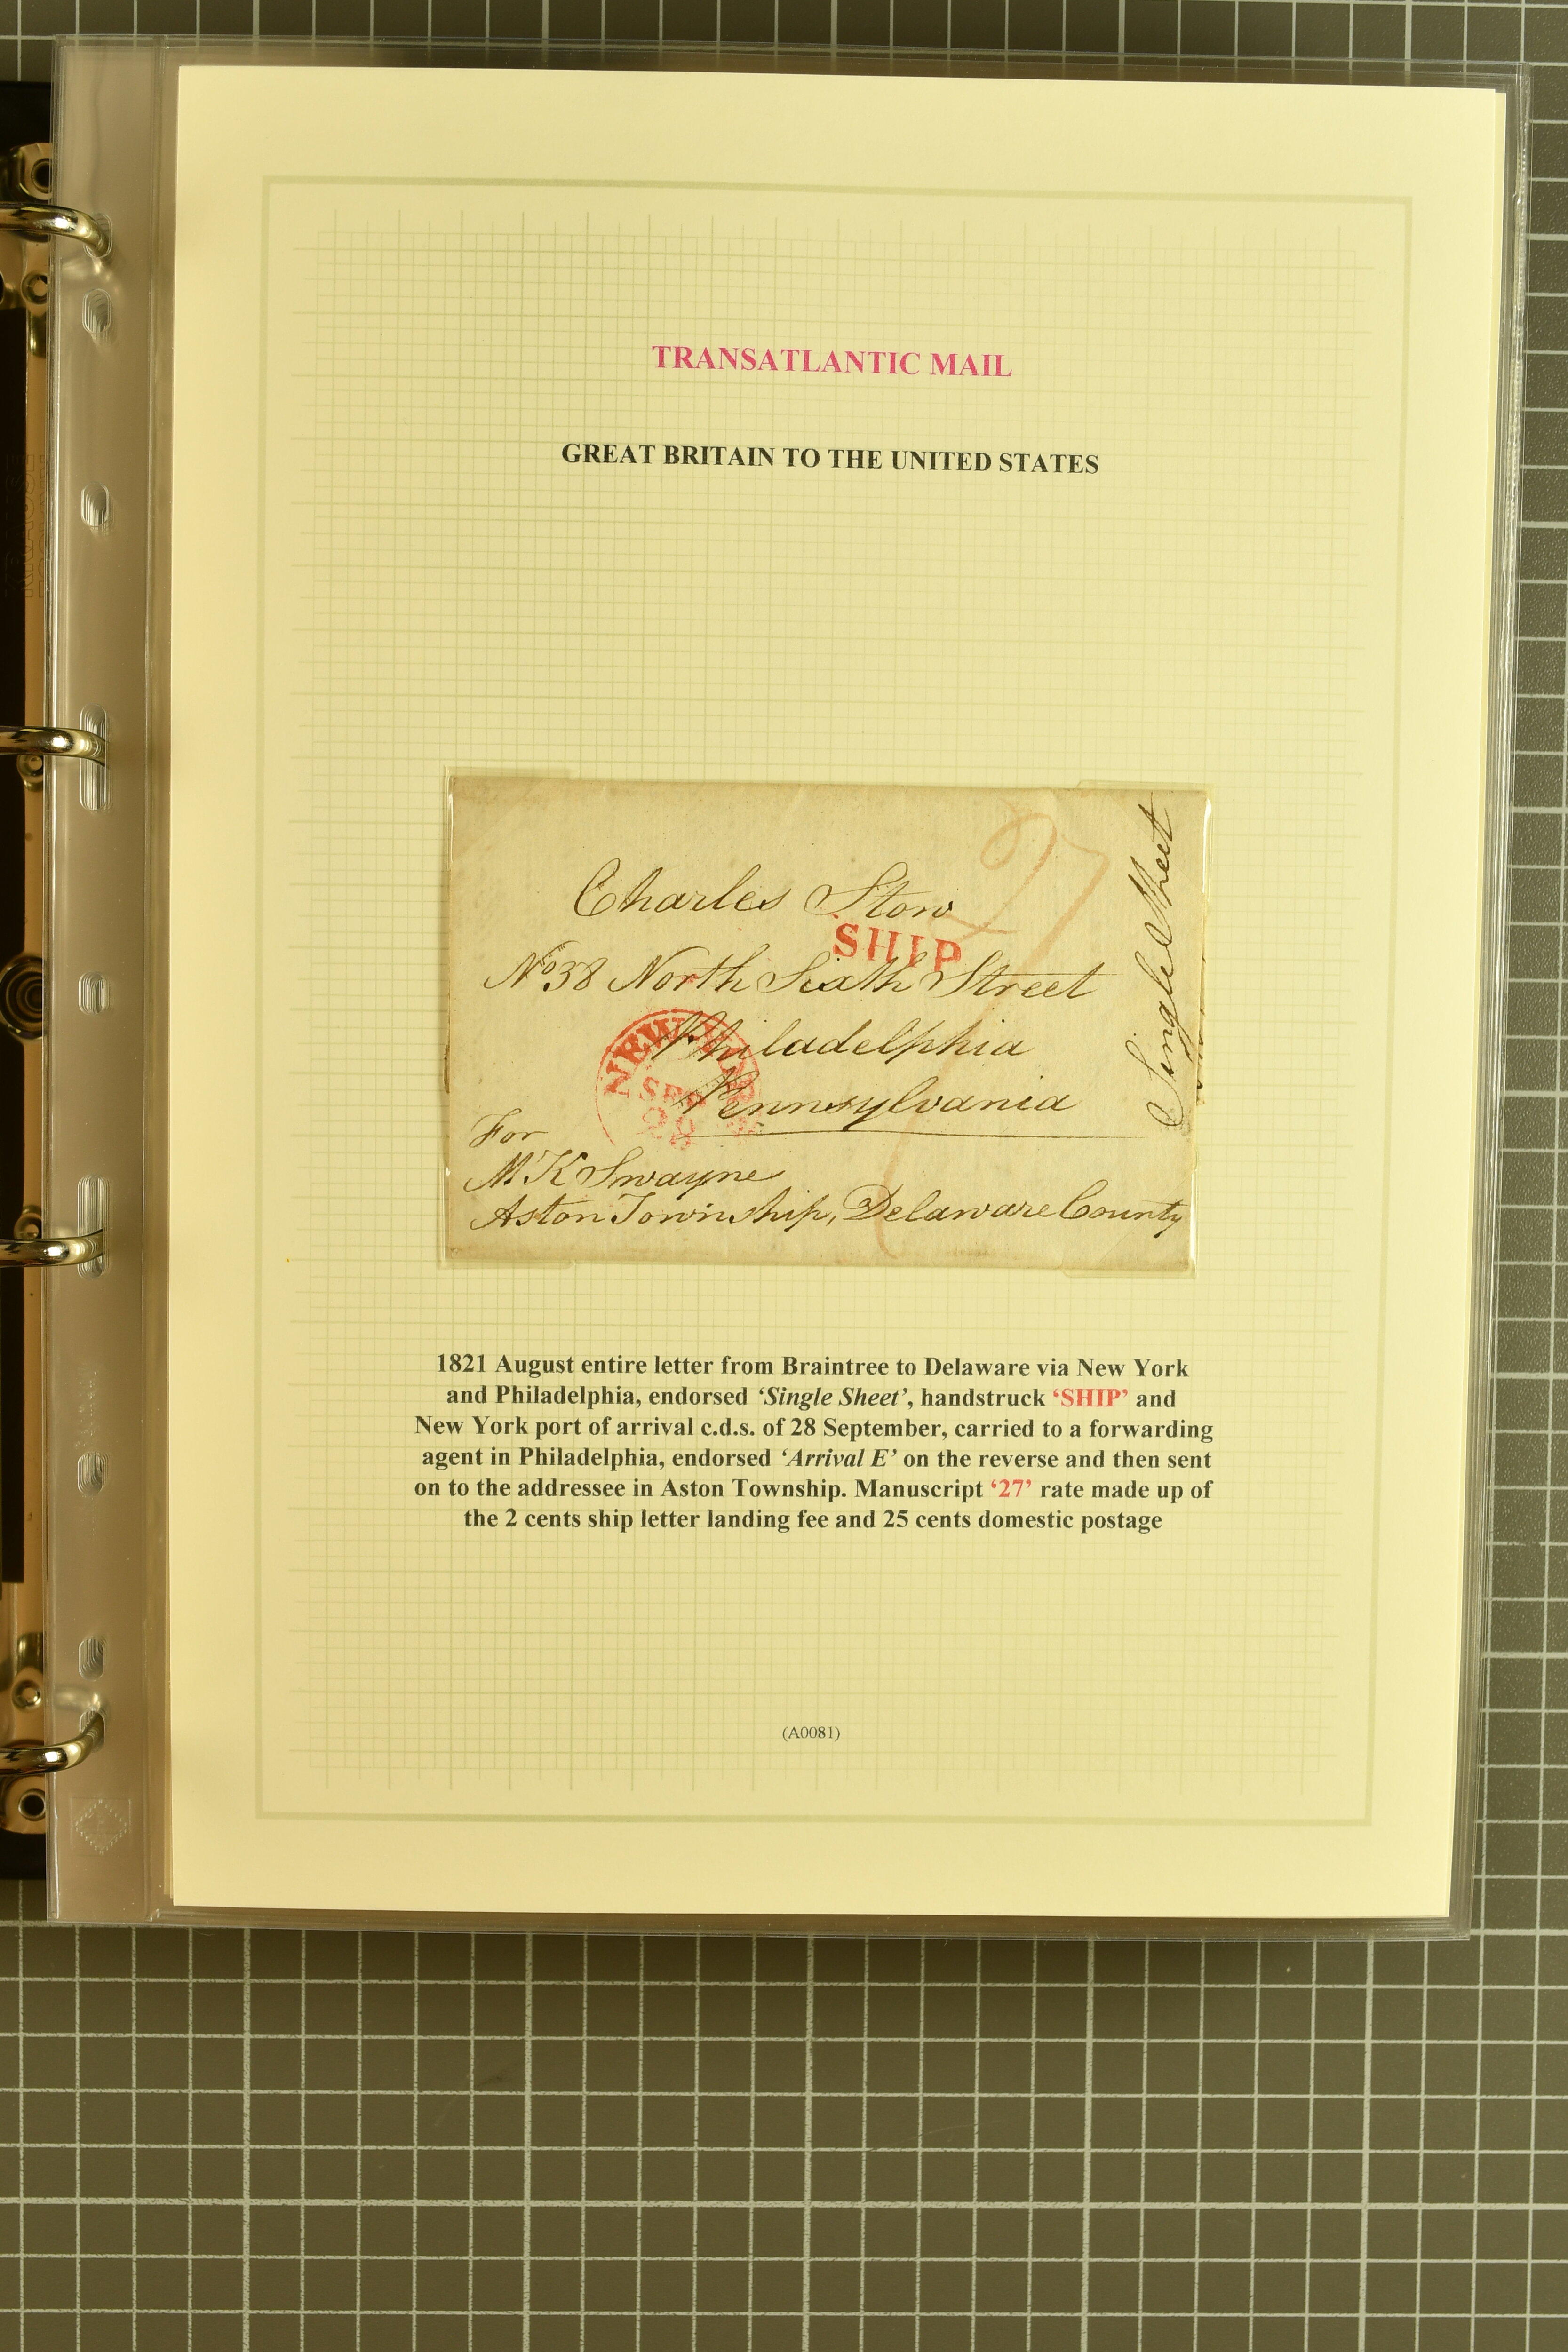 TRANSATLANTIC MAIL
GREAT BRITAIN TO THE UNITED STATES
27
Charles Stow
SHIP
No 38 North Sixth Street
Philadelphia
Pennsylvania
NEW YORK
SEP
28
Single Sheet
For
M K Swayne
Aston Township, Delaware County
1821 August entire letter from Braintree to Delaware via New York
and Philadelphia, endorsed ‘Single Sheet’, handstruck ‘SHIP’ and
New York port of arrival c.d.s. of 28 September, carried to a forwarding
agent in Philadelphia, endorsed ‘Arrival E’ on the reverse and then sent
on to the addressee in Aston Township. Manuscript ‘27’ rate made up of
the 2 cents ship letter landing fee and 25 cents domestic postage
(A0081)